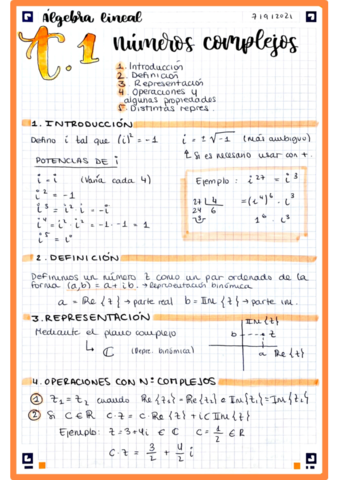 Álgebra lineal
7/9/2021
T.1 números complejos
1. Introducción
2. Definición
3. Representación
4. Operaciones y
algunas propiedades
5. Distintas repres.
1. INTRODUCCIÓN
Defino i tal que (i)² = -1
i = ± √-1 (más ambiguo)
Si es necesario usar con +.
POTENCIAS DE i
i = i (Varía cada 4)
i² = -1
i³ = i² i = -i
i⁴ = i² i² = -1 · -1 = 1
i⁵ = i
Ejemplo: i²⁷ = i³
27 | 4
24 6
3
= (i⁴)⁶ · i³
1⁶ · i³
2. DEFINICIÓN
Definimos un número z como un par ordenado de la
forma (a,b) = a + ib. → representación binómica
a = Re {z} → parte real b = Im {z} → parte im.
3. REPRESENTACIÓN
Mediante el plano complejo
↳ ℂ (Repre. binómica)
Im {z}
b z
a Re {z}
4. OPERACIONES CON Nº COMPLEJOS
1 z₁ = z₂ cuando Re {z₁} = Re {z₂} e Im {z₁} = Im {z₂}
2 Si c ∈ ℝ c · z = c · Re {z} + i c Im {z}
Ejemplo: z = 3 + 4i ∈ ℂ c = 1/2 ∈ ℝ
c · z = 3/2 + 4/2 i